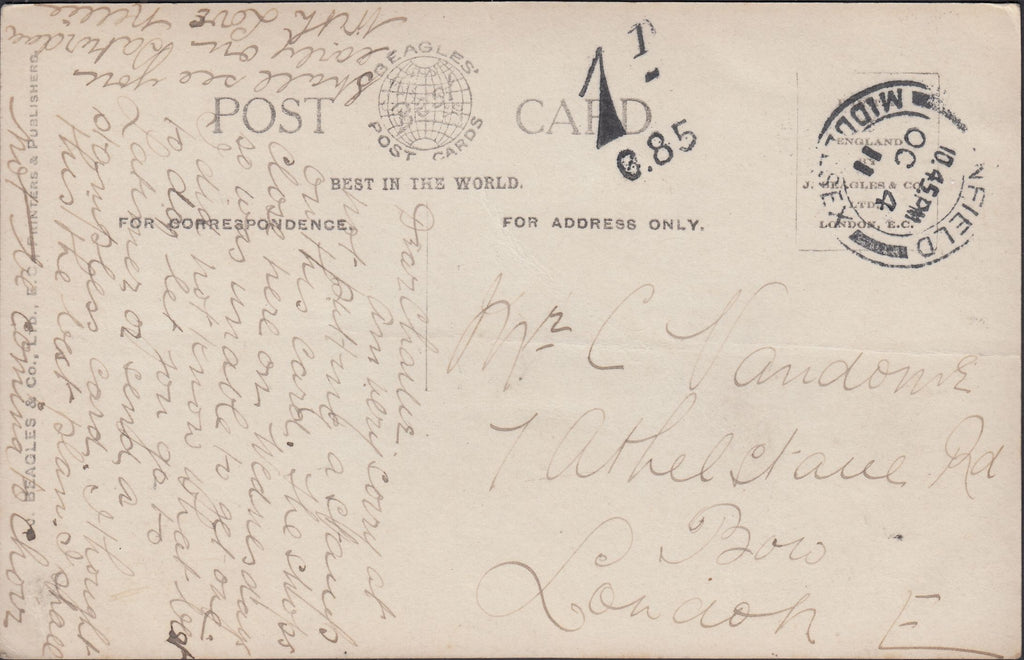 BEAGLES'
POST CARDS
POST CARD
BEST IN THE WORLD.
FOR CORRESPONDENCE.
FOR ADDRESS ONLY.
J. BEAGLES & CO., LTD., E.C. PRINTERS & PUBLISHERS
ENGLAND
J. BEAGLES & CO.
LTD.
LONDON, E.C.
ENFIELD
MIDDLESEX
10.45PM
OC 4
11
T
1
C.85
Mr C Vandome
7 Athelstane Rd
Bow
London E
Dear Charlie
Am very sorry at
not putting a stamp
on this card. The shops
close here on Wednesday
so was unable to get one.
I did not know what best
to do, let you go to
Latimer or send a
stampless card. I thought
this the best plan. I shall
not be coming to Chor
Shall see you
early on Saturday
With Love Nellie